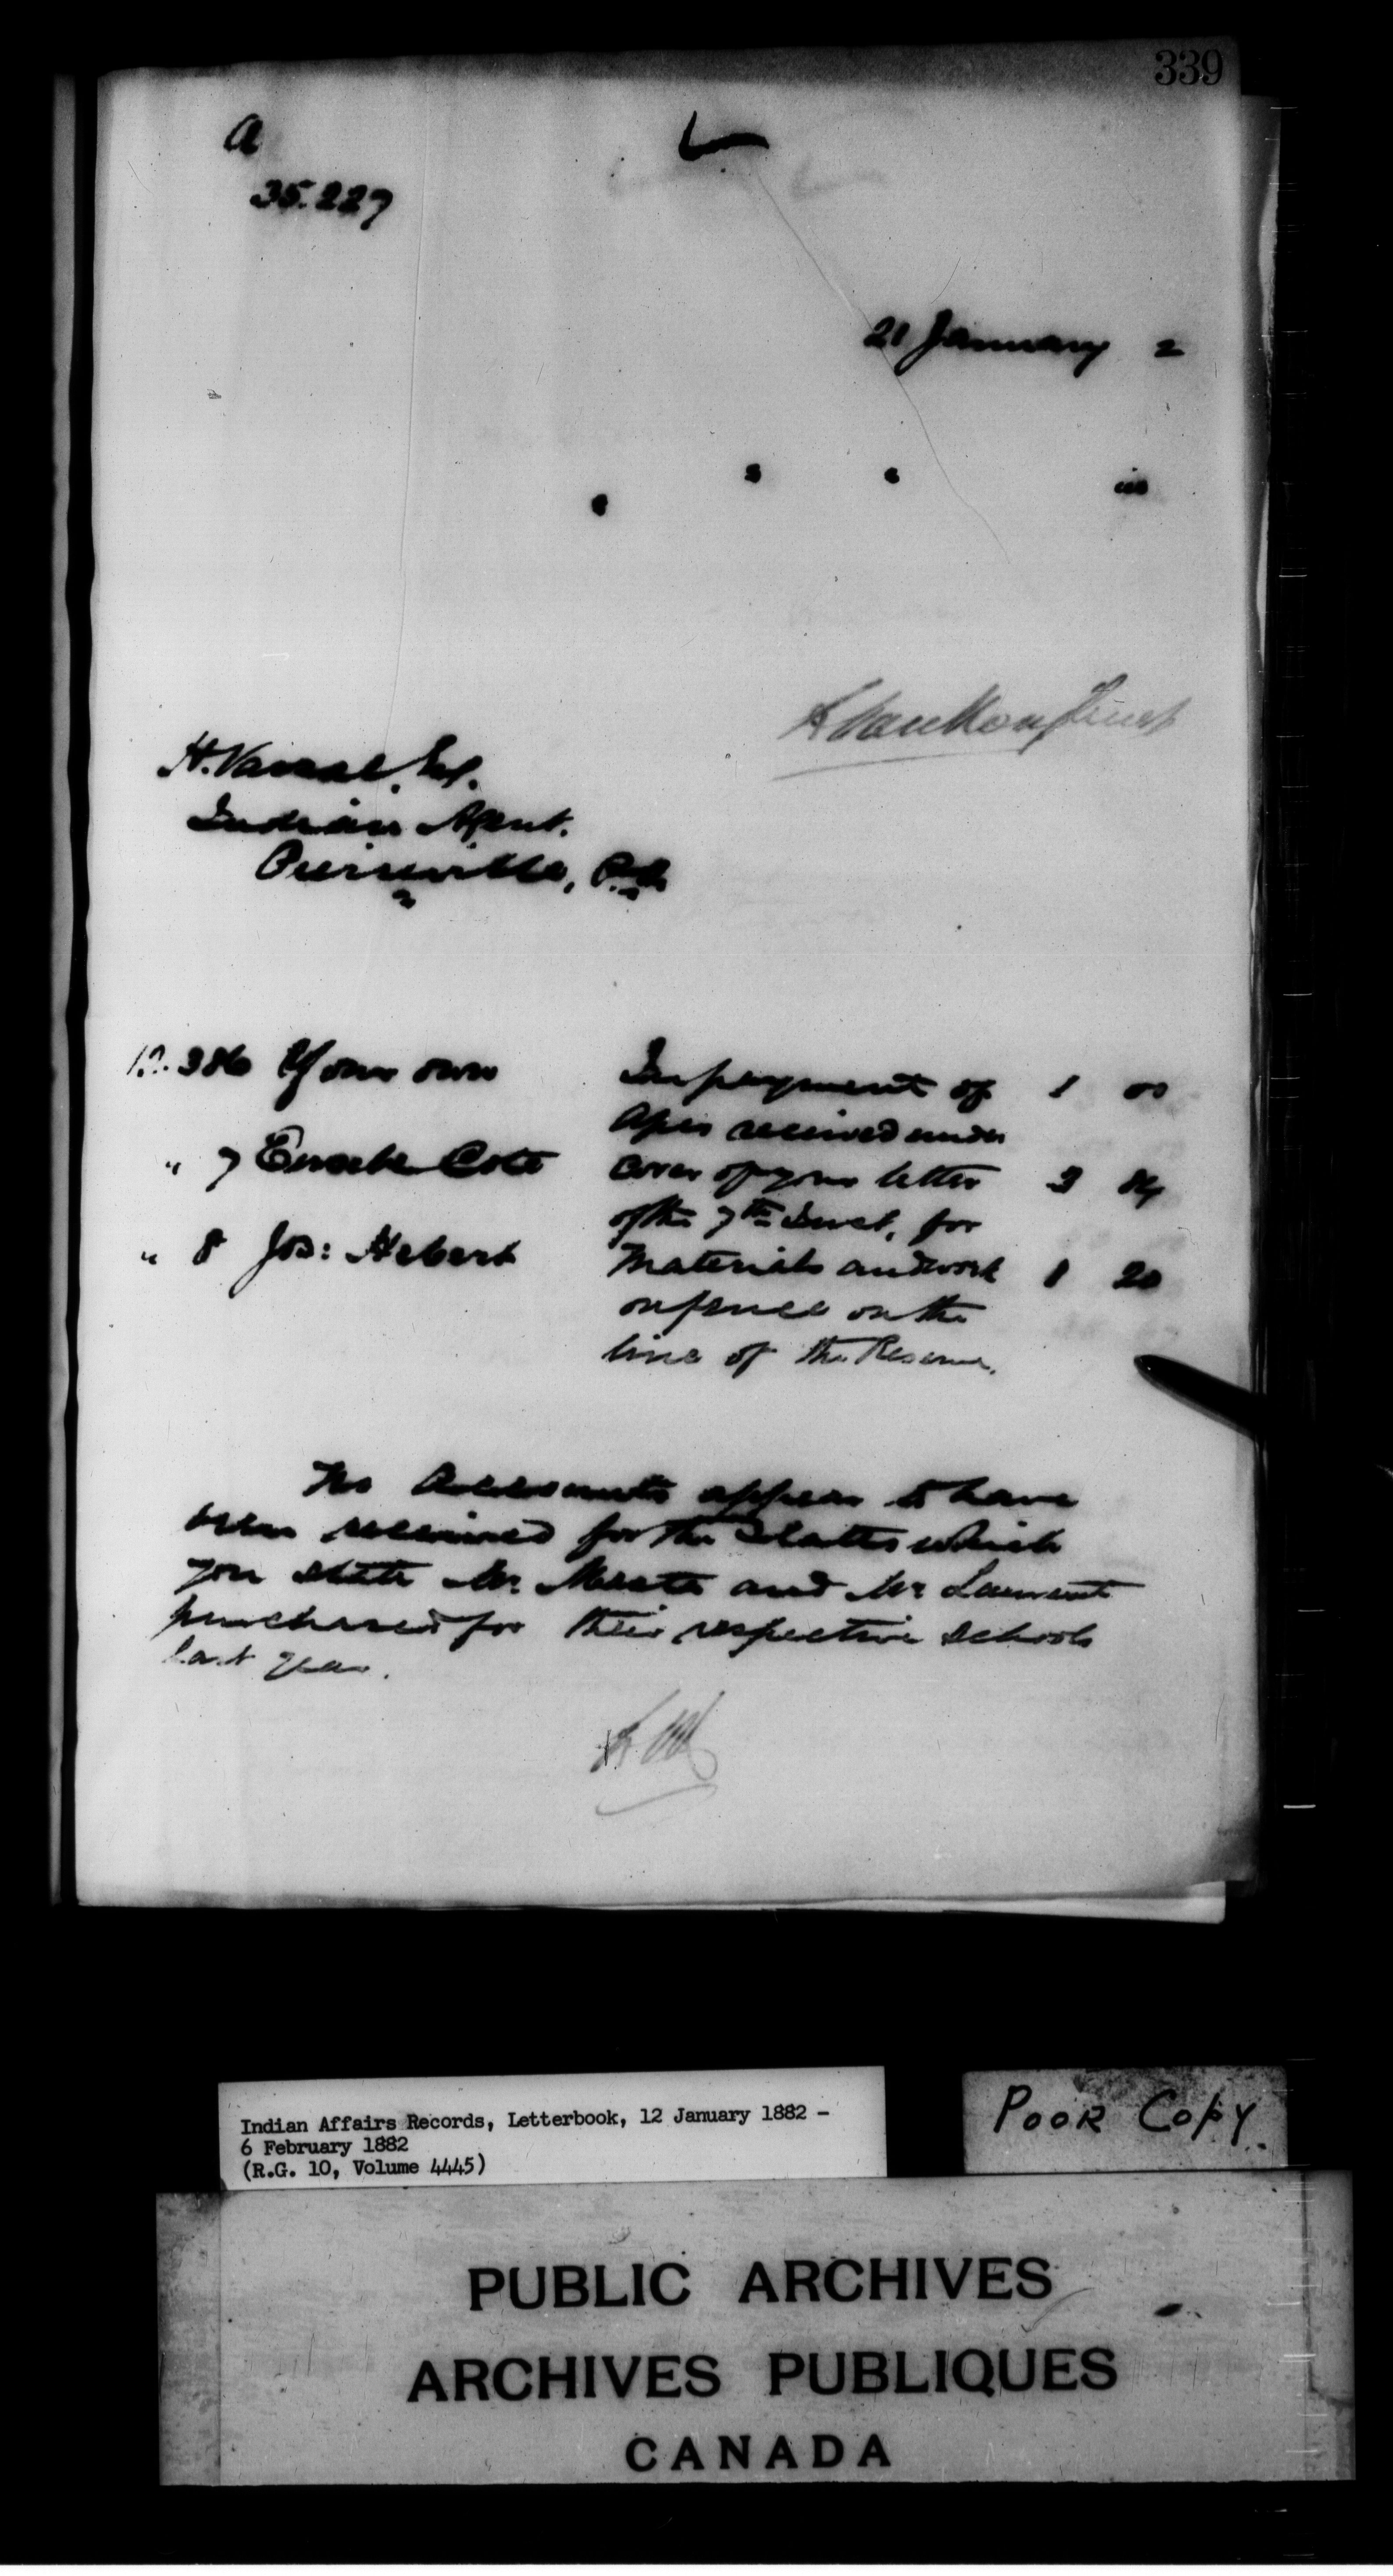 339
a
35.227
21 January 2
s
L. Vankoughnet
H. Vassal, Esq.
Indian Agent.
Pierreville, P.Q.
386 Your own In payment of 1 00
a/cs received under
" 7 Eusebe Cote cover of your letter 3 84
of the 7th Inst, for
" 8 Jos: Hebert materials and work 1 20
on fence on the
line of the Reserve.
No Accounts appear to have
been received for the Slates which
you state Mr. Masta and Mr Laurent
purchased for their respective schools
last year.
Indian Affairs Records, Letterbook, 12 January 1882 -
6 February 1882
(R.G. 10, Volume 4445)
POOR COPY.
PUBLIC ARCHIVES
ARCHIVES PUBLIQUES
CANADA